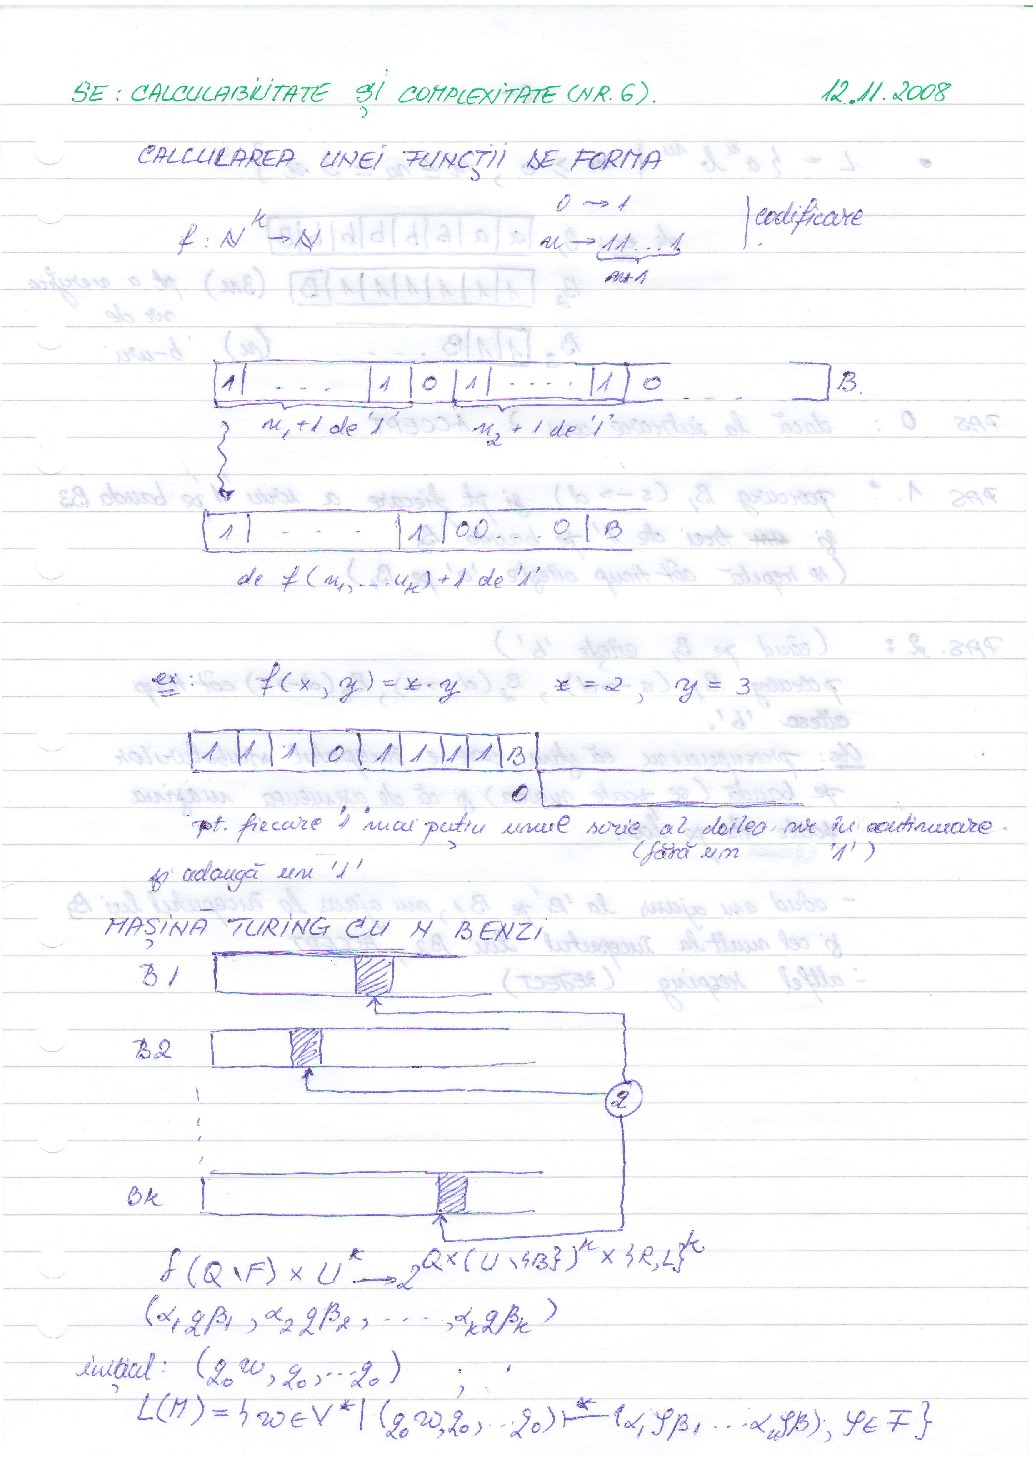 SE: CALCULABILITATE ȘI COMPLEXITATE (NR. 6). 12.11.2008
CALCULAREA UNEI FUNCȚII DE FORMA
f : N^k → N 0 → 1 codificare
n → 11...1
n+1
1 . . . 1 0 1 . . . . 1 0 . . . B.
n₁+1 de '1' n₂+1 de '1'
1 . . . . 1 00...0 B
de f(n₁,...n_k)+1 de '1'
ex: f(x, y) = x·y x = 2, y = 3
1 1 1 0 1 1 1 1 B
0
pt. fiecare '1' mai puțin unul scrie al doilea nr în continuare.
(fără un '1')
și adaugă un '1'
MAȘINĂ TURING CU N BENZI
B1
B2
q
Bk
f(Q\F) × U^k → 2^{Q×(U\{B})^k × {R,L}^k}
(α₁qβ₁, α₂qβ₂, ...., α_kqβ_k)
inițial: (q₀w, q₀, ... q₀) ;
L(M) = {w∈V* | (q₀w, q₀, ... q₀) ⊢* (α₁φβ₁ ... α_nφβ), φ∈F}